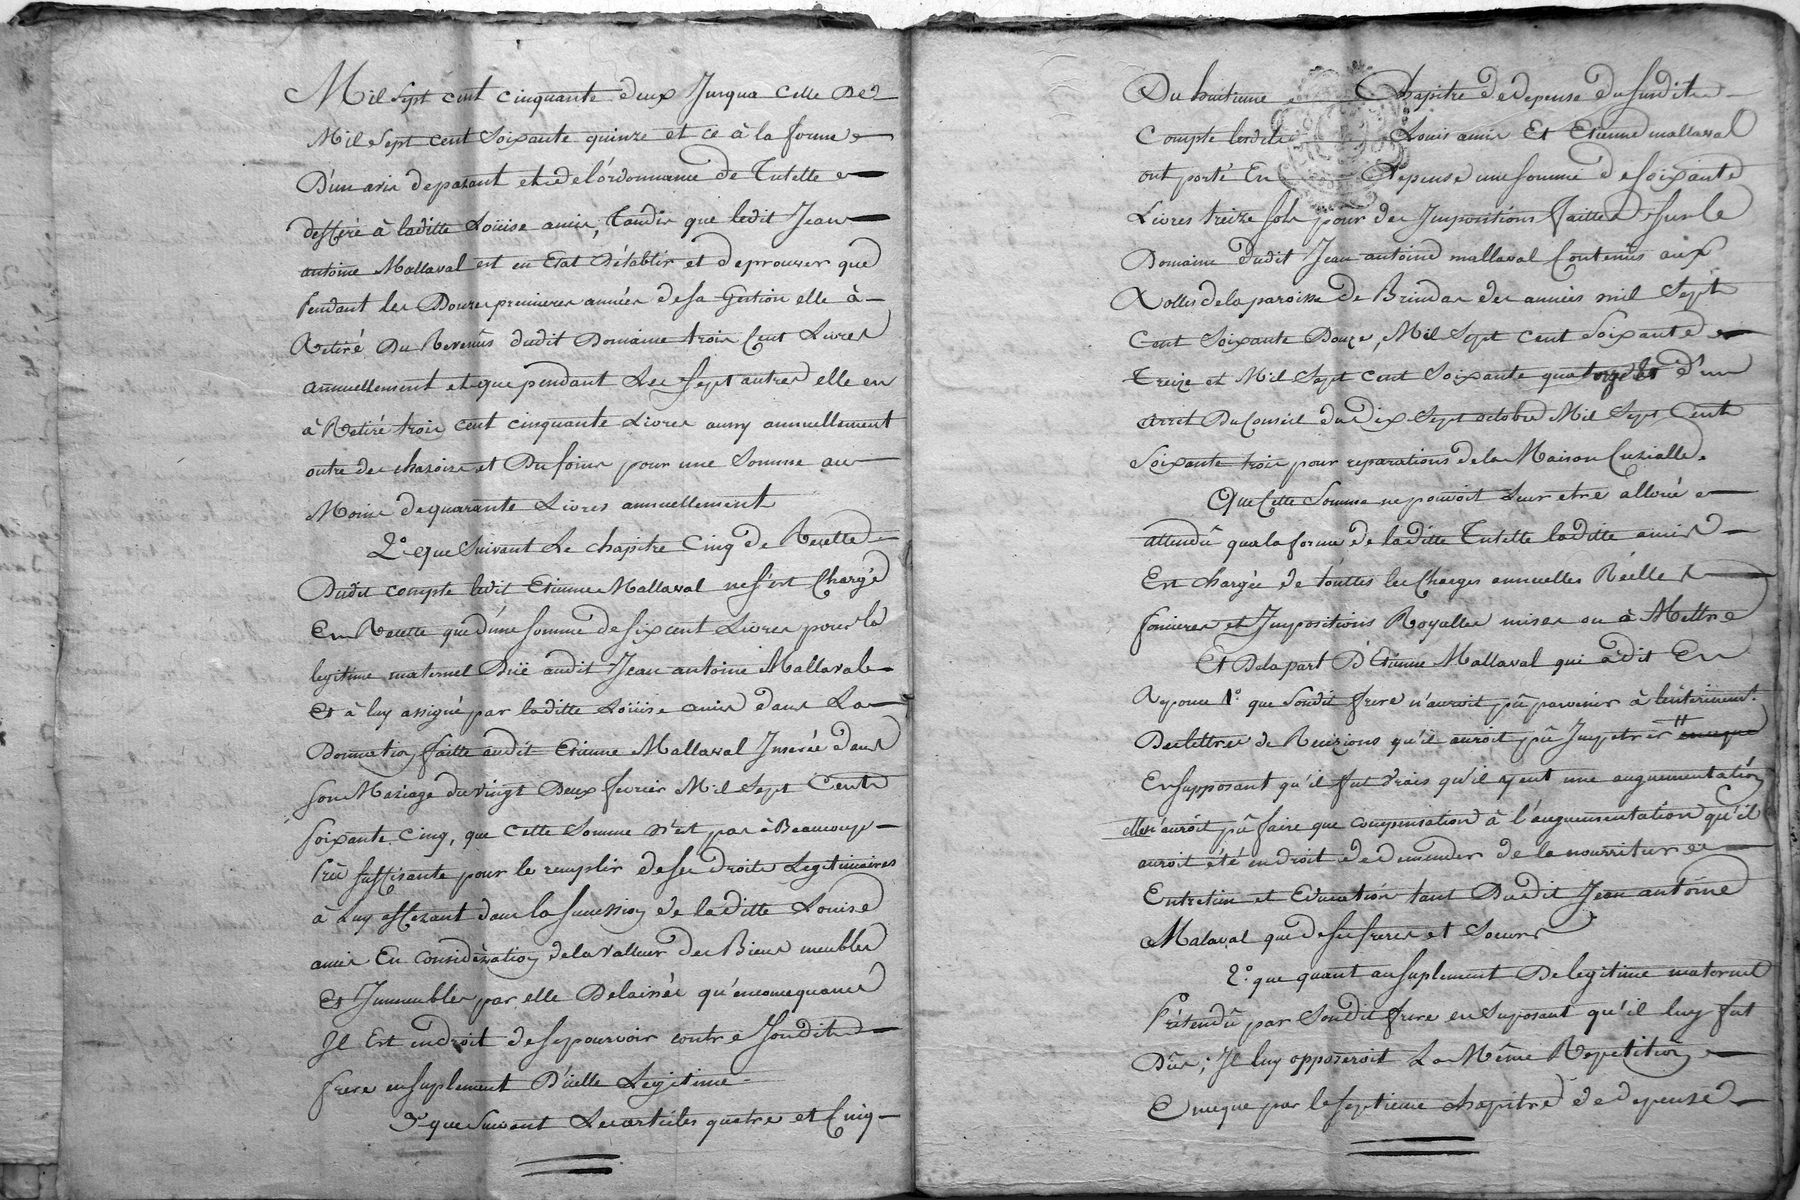 Mil sept cent cinquante deux Jusqua celle De
Mil sept cent soixante quinze et ce à la forme
D'un avis de parant et de l'ordonnance de Tutelle
defféré à laditte Loüise amis, Tandis que ledit Jean
antoine Mallaval est en Etat D'établir et de prouver que
Pendant les Douze premieres années de sa Gestion elle à
Retiré Du Revenûs dudit Domaine trois Cent Livres
annuellement et que pendant Les sept autres elle en
à Retiré trois cent cinquante Livres aussy annuellement
outre des chazoirs et Du foins pour une Somme au
Moins de quarante Livres annuellement
2.° que suivant Le chapitre Cinq de Recette
Dudit compte ledit Etienne Mallaval ne s'est Chargé
En Recette que d'une somme de six cent Livres pour la
legitime maternel Düe audit Jean antoine Mallaval
Et à luy assigné par laditte Loüise amis dans La
Donnation faitte audit Etienne Mallaval Inserée dans
son Mariage du vingt Deux fevrier Mil Sept Cent
soixante Cinq, que Cette Somme n'est pas à Beaucoup
Prü suffisante pour le remplir de ses droits Legitimaires
à Luy afferant dans la succession de laditte Louise
amis En considèration de la Valleur des Biens meubles
Et Immeubles par elle Delaissés qu'en consequance
Il Est en droit de se pourvoir contre Sondit
frere en suplement D'icelle Legitime
3.° que suivant Les articles quatre et Cinq
Du huitieme Chapitre de depense du susdit
Compte lesdits Louis amis Et Etienne mallaval
ont porté En Depense une somme de soixante
Livres treize sols pour des Impositions faittes sur le
Domaine dudit Jean antoine mallaval Contenus aux
Rolles de la paroisse de Brindas des années mil sept
Cent Soixante Douze, Mil sept cent soixante
treize et Mil sept cent soixante quatorze et d'un
arret Du Conseil du Dix Sept octobre Mil Sept Cent
Soixante trois pour reparations de la Maison Curialle.
Que Cette Somme ne pouvoit Leur etre alloüé
attendû que la forme de laditte Tutelle laditte amis
Est chargée de touttes les Charges annuelles Réelles
foncieres et Impositions Royalles mises ou à Mettre
Et De la part D'Etienne Mallaval qui à dit En
Reponce 1.° que Sondit frere n'auroit pû parvenir à l'enterinnent.
Des lettres de Recizions qu'il auroit pû Impetrer
En supposant qu'il fut vrais qu'il y eut une augmentation
elle n'auroit pû faire que compensation à l'augmentation qu'il
auroit été en droit de demender de la nourriture
Entretien et Education tant Dudit Jean antoine
Malaval que de ses freres et Soeurs
2.° que quant au suplement De legitime maternel
Prétendû par Sondit frere en suposant qu'il luy fut
Dûs; Il luy opposeroit La Même Repetition
En ce que par le septieme chapitre de depense